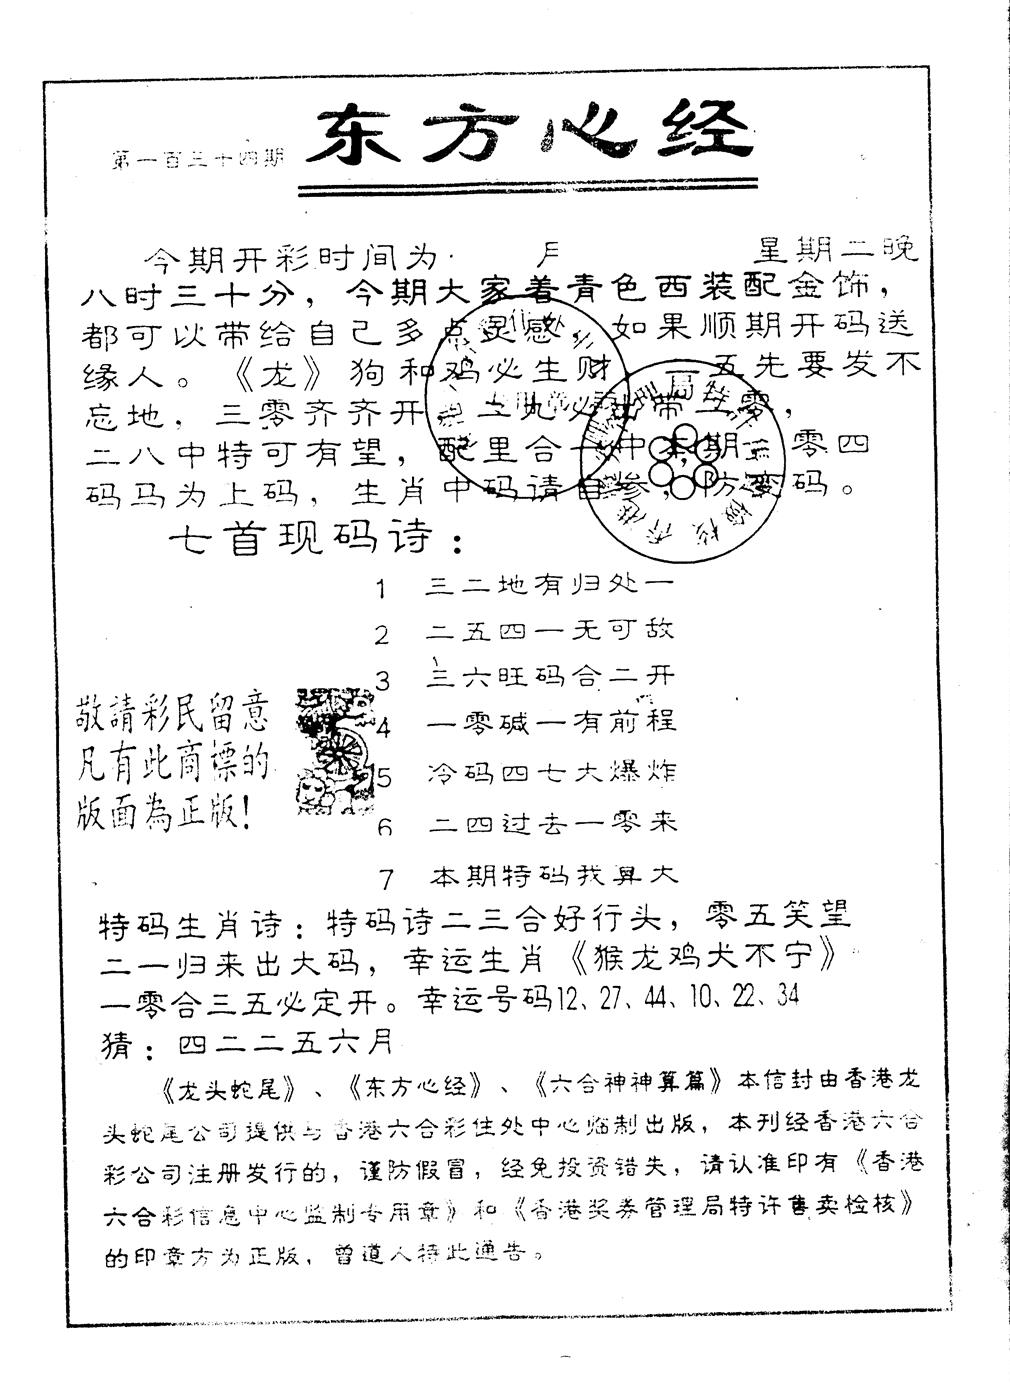 东方心经
第一百三十四期
今期开彩时间为 月 星期二晚
八时三十分，今期大家着青色西装配金饰，
都可以带给自己多点灵感，如果顺期开码送
缘人。《龙》狗和鸡必生财 一五先要发不
忘地，三零齐齐开 二九必出带二零，
二八中特可有望，配里合一 中本期 零四
码马为上码，生肖中码请自参，防变码。
七首现码诗：
1 三二地有归处一
2 二五四一无可敌
3 三六旺码合二开
4 一零碱一有前程
5 冷码四七大爆炸
6 二四过去一零来
7 本期特码我算大
敬請彩民留意
凡有此商標的
版面為正版！
特码生肖诗：特码诗二三合好行头，零五笑望
二一归来出大码，幸运生肖《猴龙鸡犬不宁》
一零合三五必定开。幸运号码12、27、44、10、22、34
猜：四二二五六月
《龙头蛇尾》、《东方心经》、《六合神神算篇》本信封由香港龙
头蛇尾公司提供与香港六合彩住处中心临制出版，本刊经香港六合
彩公司注册发行的，谨防假冒，经免投资错失，请认准印有《香港
六合彩信息中心监制专用章》和《香港奖券管理局特许售卖检核》
的印章方为正版，曾道人特此通告。